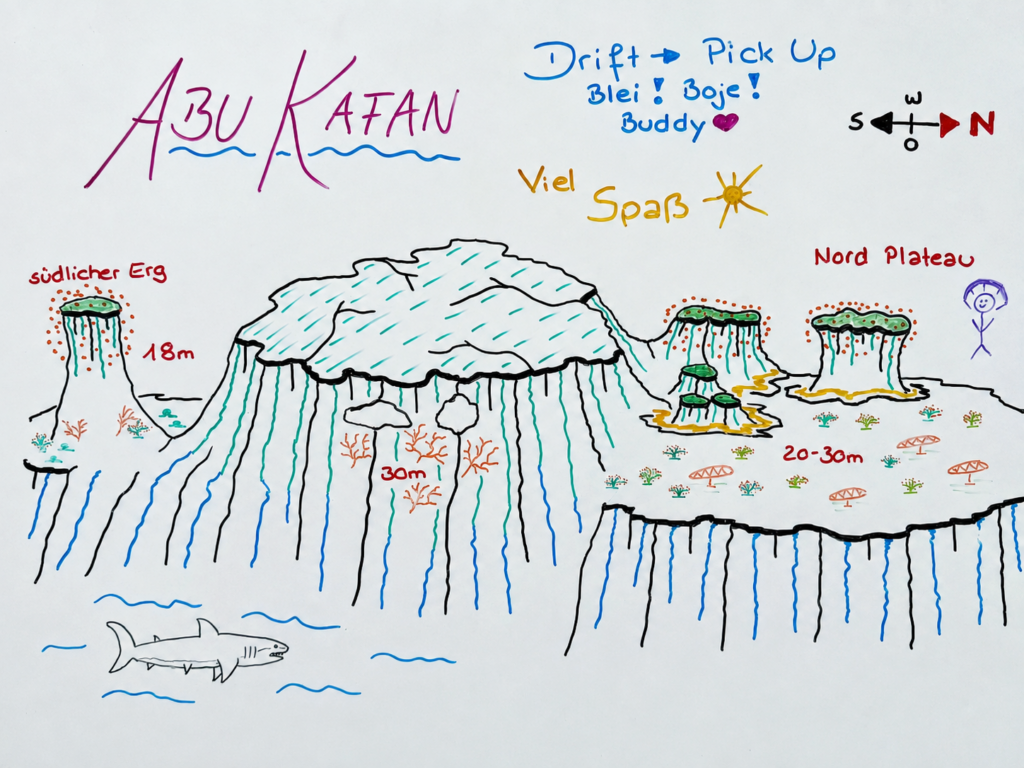 ABU KAFAN
Drift → Pick Up
Blei! Boje!
Buddy ♥
W
S N
O
Viel
Spaß
südlicher Erg
Nord Plateau
18m
20-30m
30m